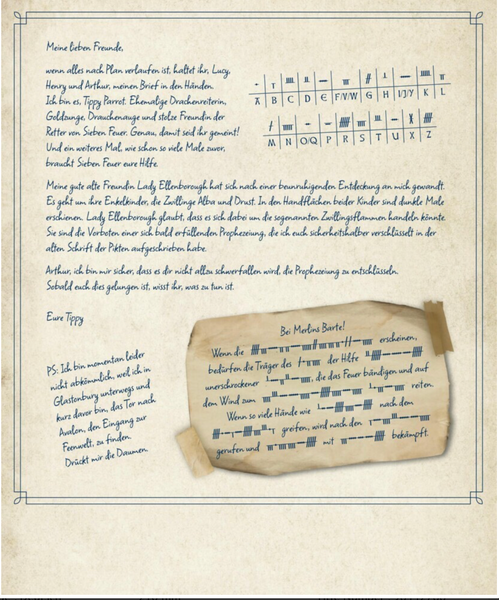 Meine lieben Freunde,
wenn alles nach Plan verlaufen ist, haltet ihr, Lucy,
Henry und Arthur, meinen Brief in den Händen.
Ich bin es, Tippy Parrot. Ehemalige Drachenreiterin,
Goldzunge, Drachenauge und stolze Freundin der
Retter von Sieben Feuer. Genau, damit seid ihr gemeint!
Und ein weiteres Mal, wie schon so viele Male zuvor,
braucht Sieben Feuer eure Hilfe.
A B C D E F/V/W G H I/J/Y K L
M N O/Q P R S T U X Z
Meine gute alte Freundin Lady Ellenborough hat sich nach einer beunruhigenden Entdeckung an mich gewandt.
Es geht um ihre Enkelkinder, die Zwillinge Alba und Drust. In den Handflächen beider Kinder sind dunkle Male
erschienen. Lady Ellenborough glaubt, dass es sich dabei um die sogenannten Zwillingsflammen handeln könnte.
Sie sind die Vorboten einer sich bald erfüllenden Prophezeiung, die ich euch sicherheitshalber verschlüsselt in der
alten Schrift der Pikten aufgeschrieben habe.
Arthur, ich bin mir sicher, dass es dir nicht allzu schwerfallen wird, die Prophezeiung zu entschlüsseln.
Sobald euch dies gelungen ist, wisst ihr, was zu tun ist.
Eure Tippy
PS: Ich bin momentan leider
nicht abkömmlich, weil ich in
Glastonbury unterwegs und
kurz davor bin, das Tor nach
Avalon, den Eingang zur
Feenwelt, zu finden.
Drückt mir die Daumen.
Bei Merlins Barte!
Wenn die erscheinen,
bedürfen die Träger des der Hilfe
unerschrockener , die das Feuer bändigen und auf
dem Wind zum reiten.
Wenn so viele Hände wie nach dem
greifen, wird nach den
gerufen und mit bekämpft.